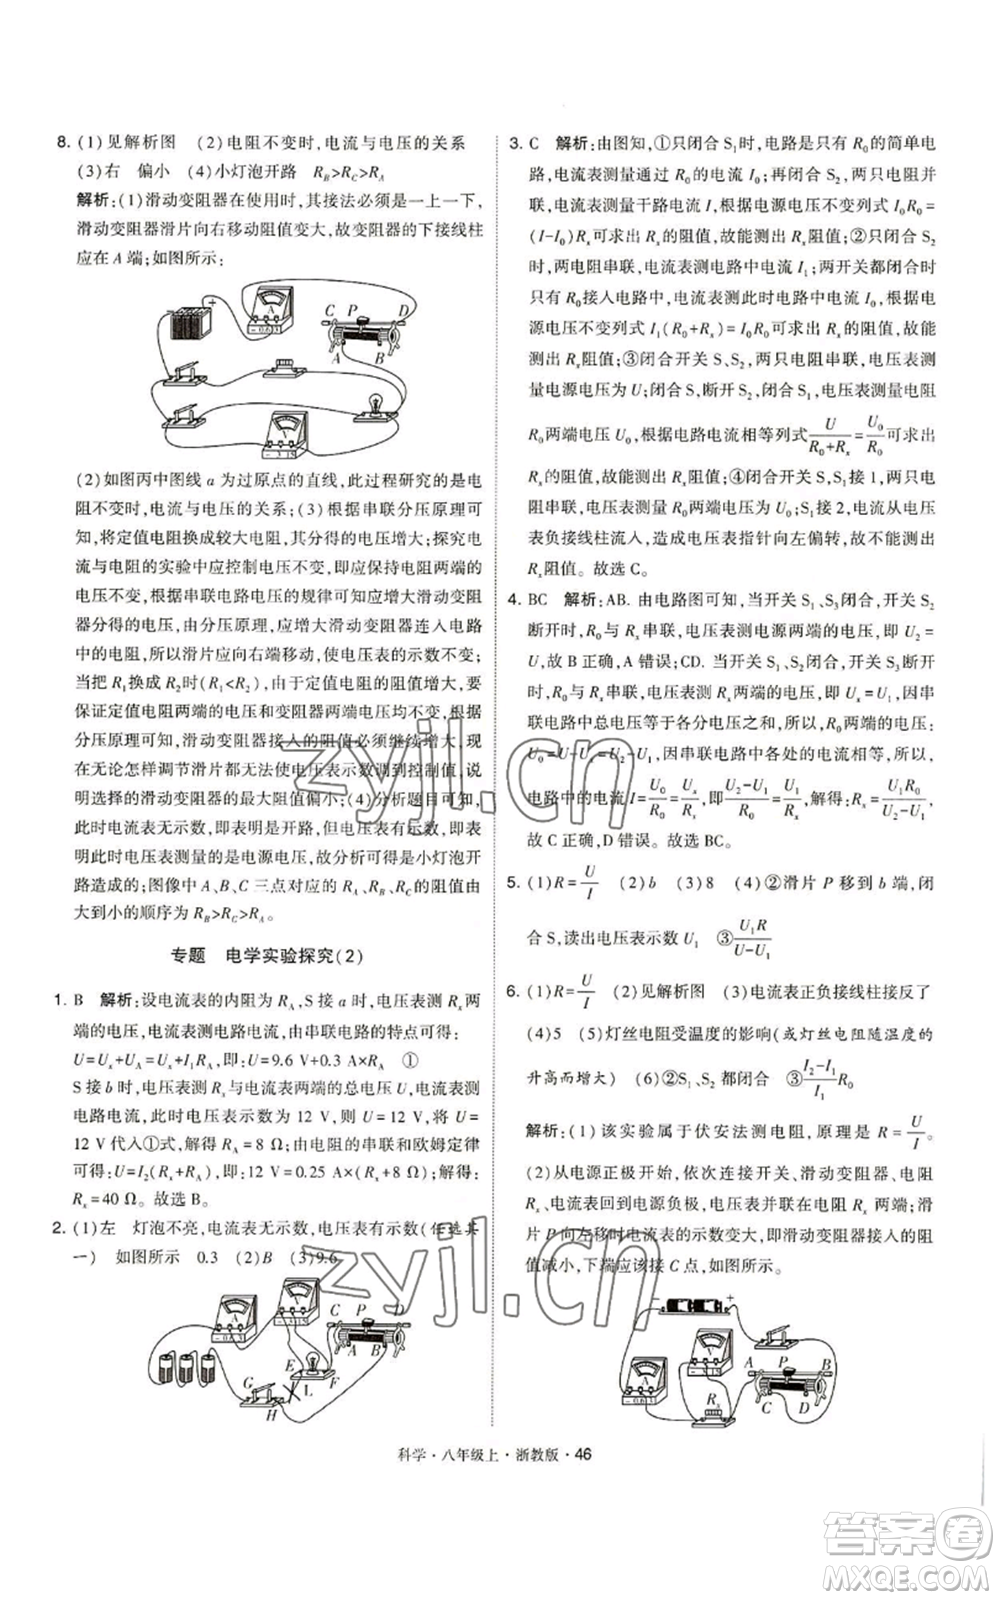 8. (1)见解析图 (2)电阻不变时,电流与电压的关系
(3)右 偏小 (4)小灯泡开路 R_B>R_C>R_A
解析:(1)滑动变阻器在使用时,其接法必须是一上一下,
滑动变阻器滑片向右移动阻值变大,故变阻器的下接线柱
应在 A 端;如图所示:
C P D
A B
A
- 0.6 3
(2)如图丙中图线 a 为过原点的直线,此过程研究的是电
阻不变时,电流与电压的关系;(3)根据串联分压原理可
知,将定值电阻换成较大电阻,其两端的电压增大;探究电
流与电阻的实验中应控制电压不变,即应保持电阻两端的
电压不变,根据串联电路电压的规律可知应增大滑动变阻
器分得的电压,由分压原理,应增大滑动变阻器连入电路
中的电阻,所以滑片应向右端移动,使电压表的示数不变;
当把 R₁换成 R₂时(R₁<R₂),由于定值电阻的阻值增大,要
保证定值电阻两端的电压和变阻器两端电压均不变,根据
分压原理可知,滑动变阻器接入的阻值必须继续增大,而
无论怎样调节滑片都无法使电压表示数调到控制值,说
明选择的滑动变阻器的最大阻值偏小;(4)分析题目可知,
此时电流表无示数,即表明是开路,但电压表有示数,即表
明此时电压表测量的是电源电压,故分析可得是小灯泡开
路造成的;图像中 A、B、C 三点对应的 R_A、R_B、R_C的阻值由
大到小的顺序为 R_B>R_C>R_A。
专题 电学实验探究(2)
1. B 解析:设电流表的内阻为 R_A,S 接 a 时,电压表测 Rₓ两
端的电压,电流表测电路电流,由串联电路的特点可得:
U=Uₓ+U_A=Uₓ+I₁R_A,即:U=9.6 V+0.3 A×R_A ①
S 接 b 时,电压表测 Rₓ与电流表两端的总电压 U,电流表测
电路电流,此时电压表示数为 12 V,则 U=12 V,将 U=
12 V代入①式,解得 R_A=8 Ω;由电阻的串联和欧姆定律
可得:U=I₂(Rₓ+R_A),即:12 V=0.25 A×(Rₓ+8 Ω);解得:
Rₓ=40 Ω。故选 B。
2. (1)左 灯泡不亮,电流表无示数,电压表有示数(任选其
一) 如图所示 0.3 (2)B (3)9.6
C P D
A B
E F
G H L
3. C 解析:由图知,①只闭合 S₁时,电路是只有 R₀的简单电
路,电流表测量通过 R₀的电流 I₀;再闭合 S₂时,两只电阻并
联,电流表测量干路电流 I,根据电源电压不变列式 I₀R₀=
(I-I₀)Rₓ可求出 Rₓ的阻值,故能测出 Rₓ阻值;②只闭合 S₂
时,两电阻串联,电流表测电路中电流 I₁;两开关都闭合时
只有 R₀接入电路中,电流表测此时电路中电流 I₀,根据电
源电压不变列式 I₁(R₀+Rₓ)=I₀R₀可求出 Rₓ的阻值,故能
测出 Rₓ阻值;③闭合开关 S、S₂,两只电阻串联,电压表测
量电源电压为 U;闭合 S,断开 S₂,闭合 S₁,电压表测量电阻
R₀两端电压 U₀,根据电路电流相等列式U/(R₀+Rₓ)=U₀/R₀可求出
Rₓ的阻值,故能测出 Rₓ阻值;④闭合开关 S、S₂,S₁接 1,
电压表测量 R₀的电压为 U₀;S₁接 2,电流从电压
表负接线柱流入,造成电压表指针向左偏转,故不能测出
Rₓ阻值。故选 C。
4. BC 解析:AB. 由电路图可知,当开关 S₁、S₃闭合,开关 S₂
断开时,R₀与 Rₓ串联,电压表测电源两端的电压,即 U₂=
U,故 B 正确,A 错误;CD. 当开关 S₁、S₂闭合,开关 S₃断开
时,R₀与 Rₓ串联,电压表测 Rₓ两端的电压,即 Uₓ=U₁,因串
联电路中总电压等于各分电压之和,所以,R₀两端的电压:
U₀=U-Uₓ=U₂-U₁,因串联电路中各处的电流相等,所以,
电路中的电流 I=U₀/R₀=Uₓ/Rₓ,即(U₂-U₁)/R₀=U₁/Rₓ,解得:Rₓ=U₁R₀/(U₂-U₁),
故 C 正确,D 错误。故选 BC。
5. (1)R=U/I (2)b (3)8 (4)②滑片 P 移到 b 端,闭
合 S,读出电压表示数 U₁ ③U₁R/(U-U₁)
6. (1)R=U/I (2)见解析图 (3)电流表正负接线柱接反了
(4)5 (5)灯丝电阻受温度的影响(或灯丝电阻随温度的
升高而增大) (6)②S₁、S₂都闭合 ③(I₂-I₁)/I₁R₀
解析:(1)该实验属于伏安法测电阻,原理是 R=U/I。
(2)从电源正极开始,依次连接开关、滑动变阻器、电阻
Rₓ、电流表回到电源负极,电压表应接在电阻 Rₓ两端;滑
片 P 向左移动时要求滑动变阻器接入电路的阻
值减小,下端应该接 C点,如图所示。
- +
V
A P B
C D
A
Rₓ
科学·八年级上·浙教版·46
zyjl.cn
zyjl.cn
答案圈
MXQE.COM